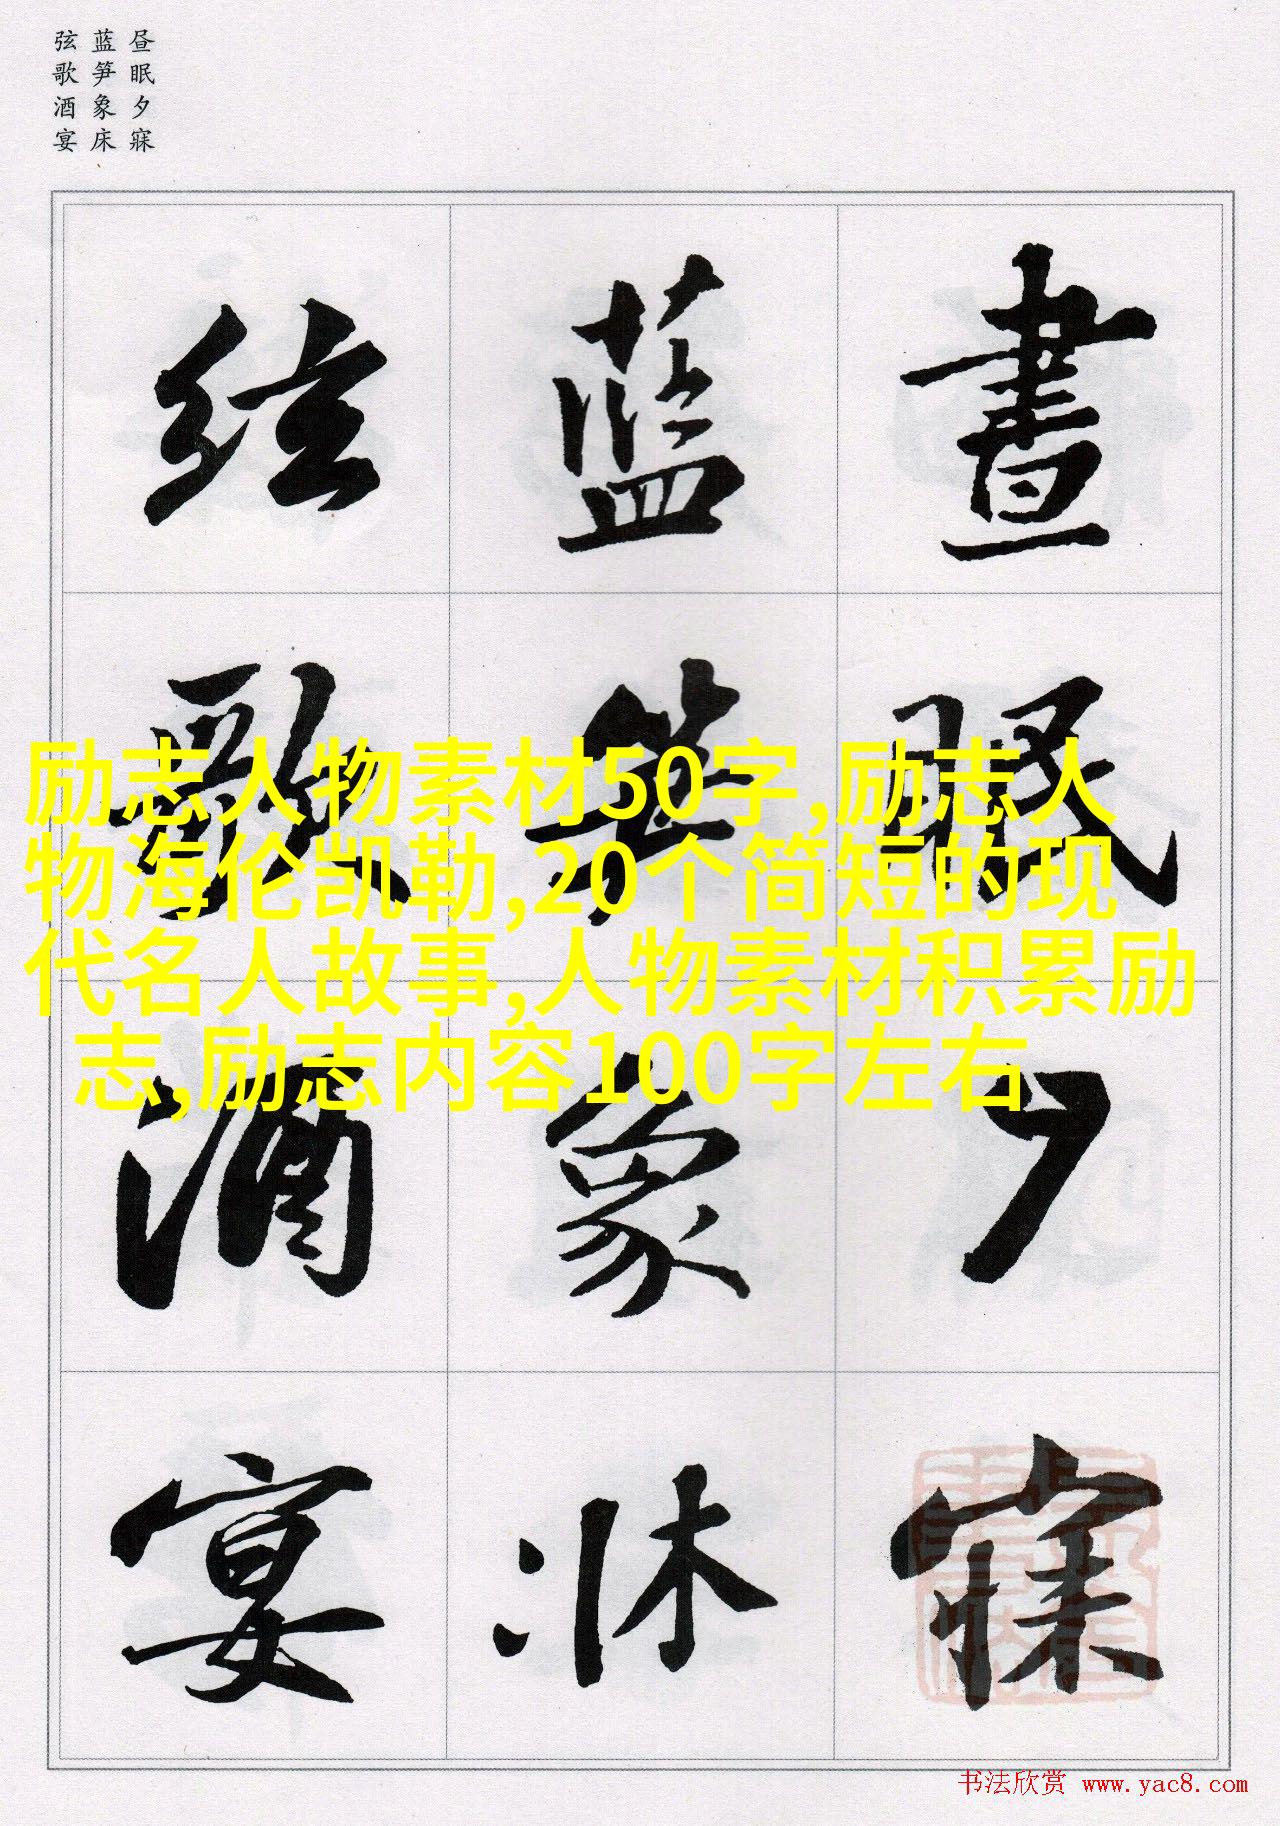 昼眠夕寐
蓝笋象床
弦歌酒宴
晝眠夕寐
藍笋象床
弦歌酒宴
励志人物素材50字,励志人
物海伦凯勒,20个简短的现
代名人故事,人物素材积累励
志,励志内容100字左右
书法欣赏 www.yac8.com